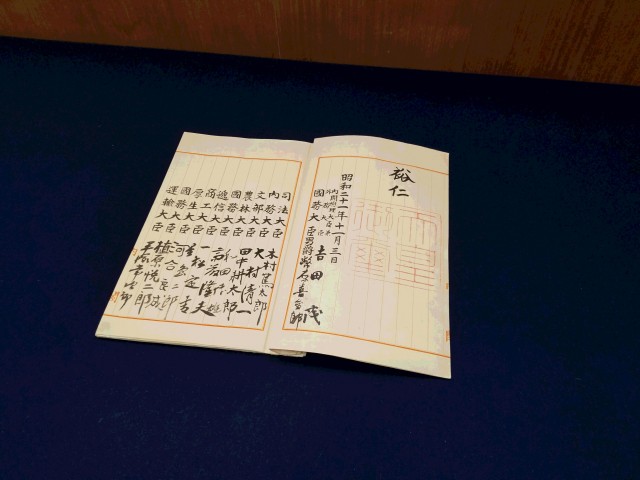 裕仁
天皇
御璽
昭和二十一年十一月三日
内閣総理大臣兼
外務大臣 吉田茂
国務大臣 男爵 幣原喜重郎
司法大臣 木村篤太郎
内務大臣 大村清一
文部大臣 田中耕太郎
農林大臣 和田博雄
国務大臣 斎藤隆夫
逓信大臣 一松定吉
商工大臣 星島二郎
厚生大臣 河合良成
国務大臣 植原悦二郎
運輸大臣 平塚常次郎